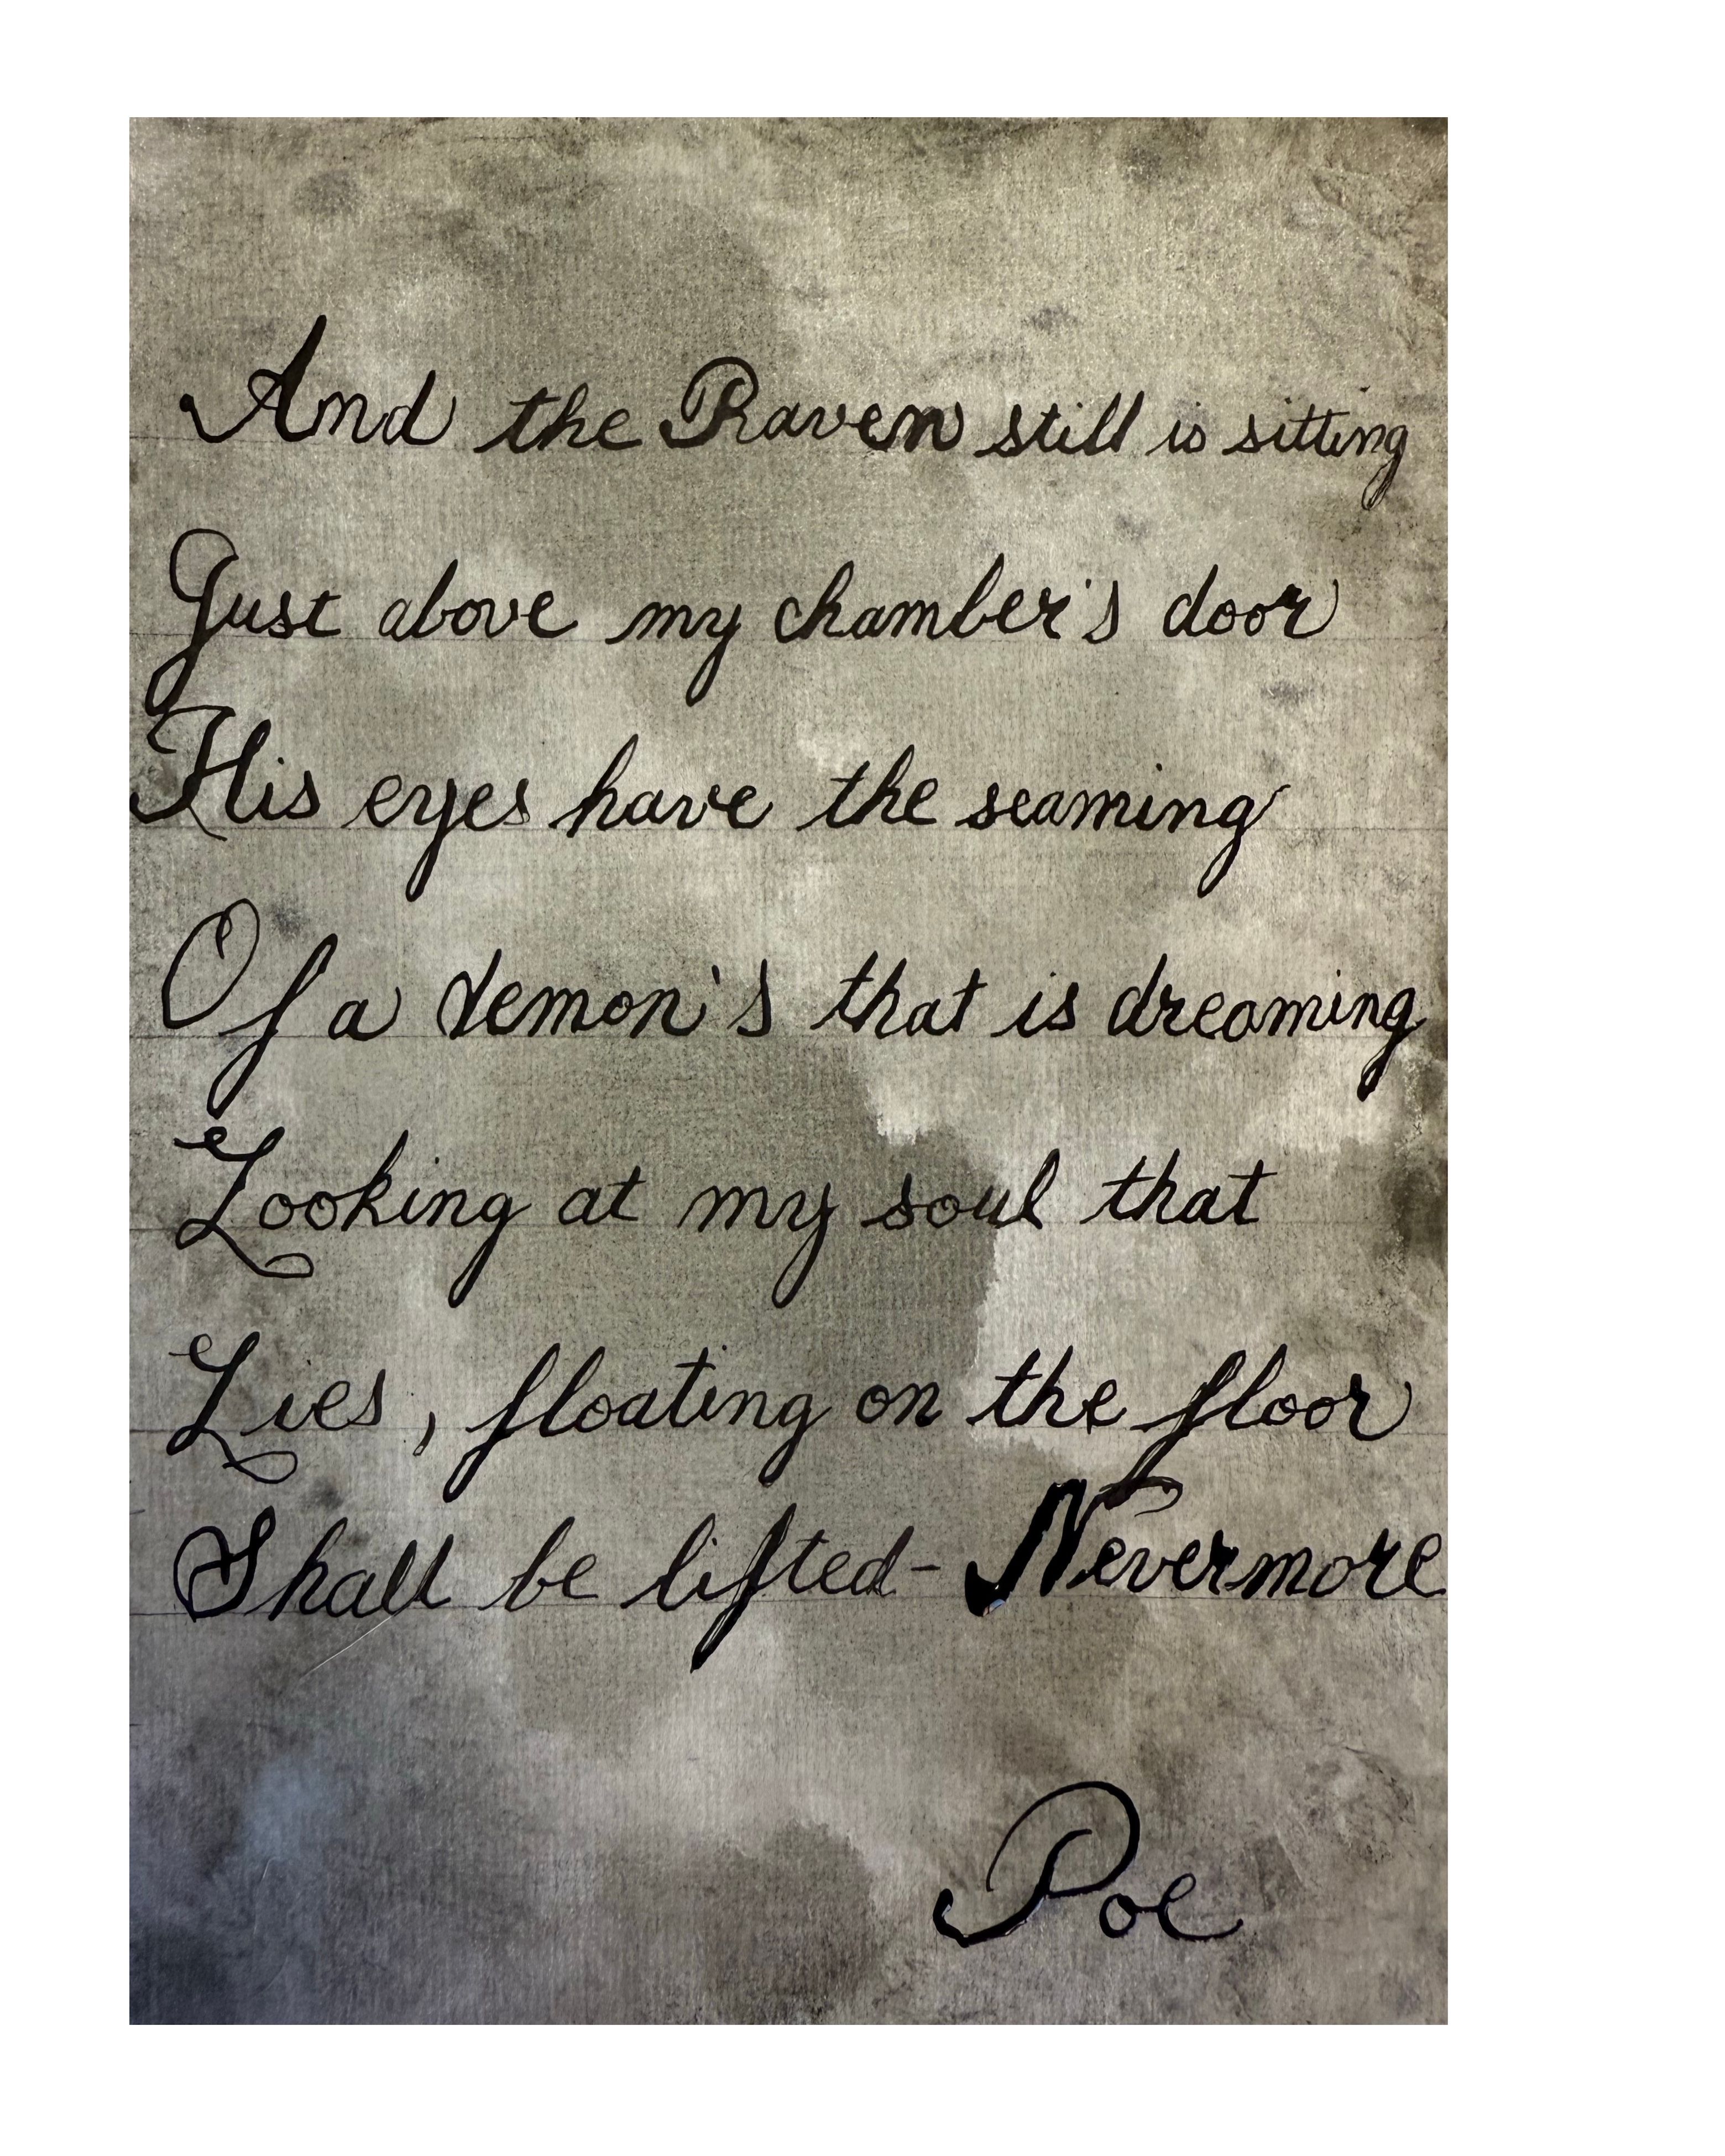 And the Raven still is sitting
Just above my chamber's door
His eyes have the seaming
Of a demon's that is dreaming
Looking at my soul that
Lies, floating on the floor
Shall be lifted- Nevermore
Poe